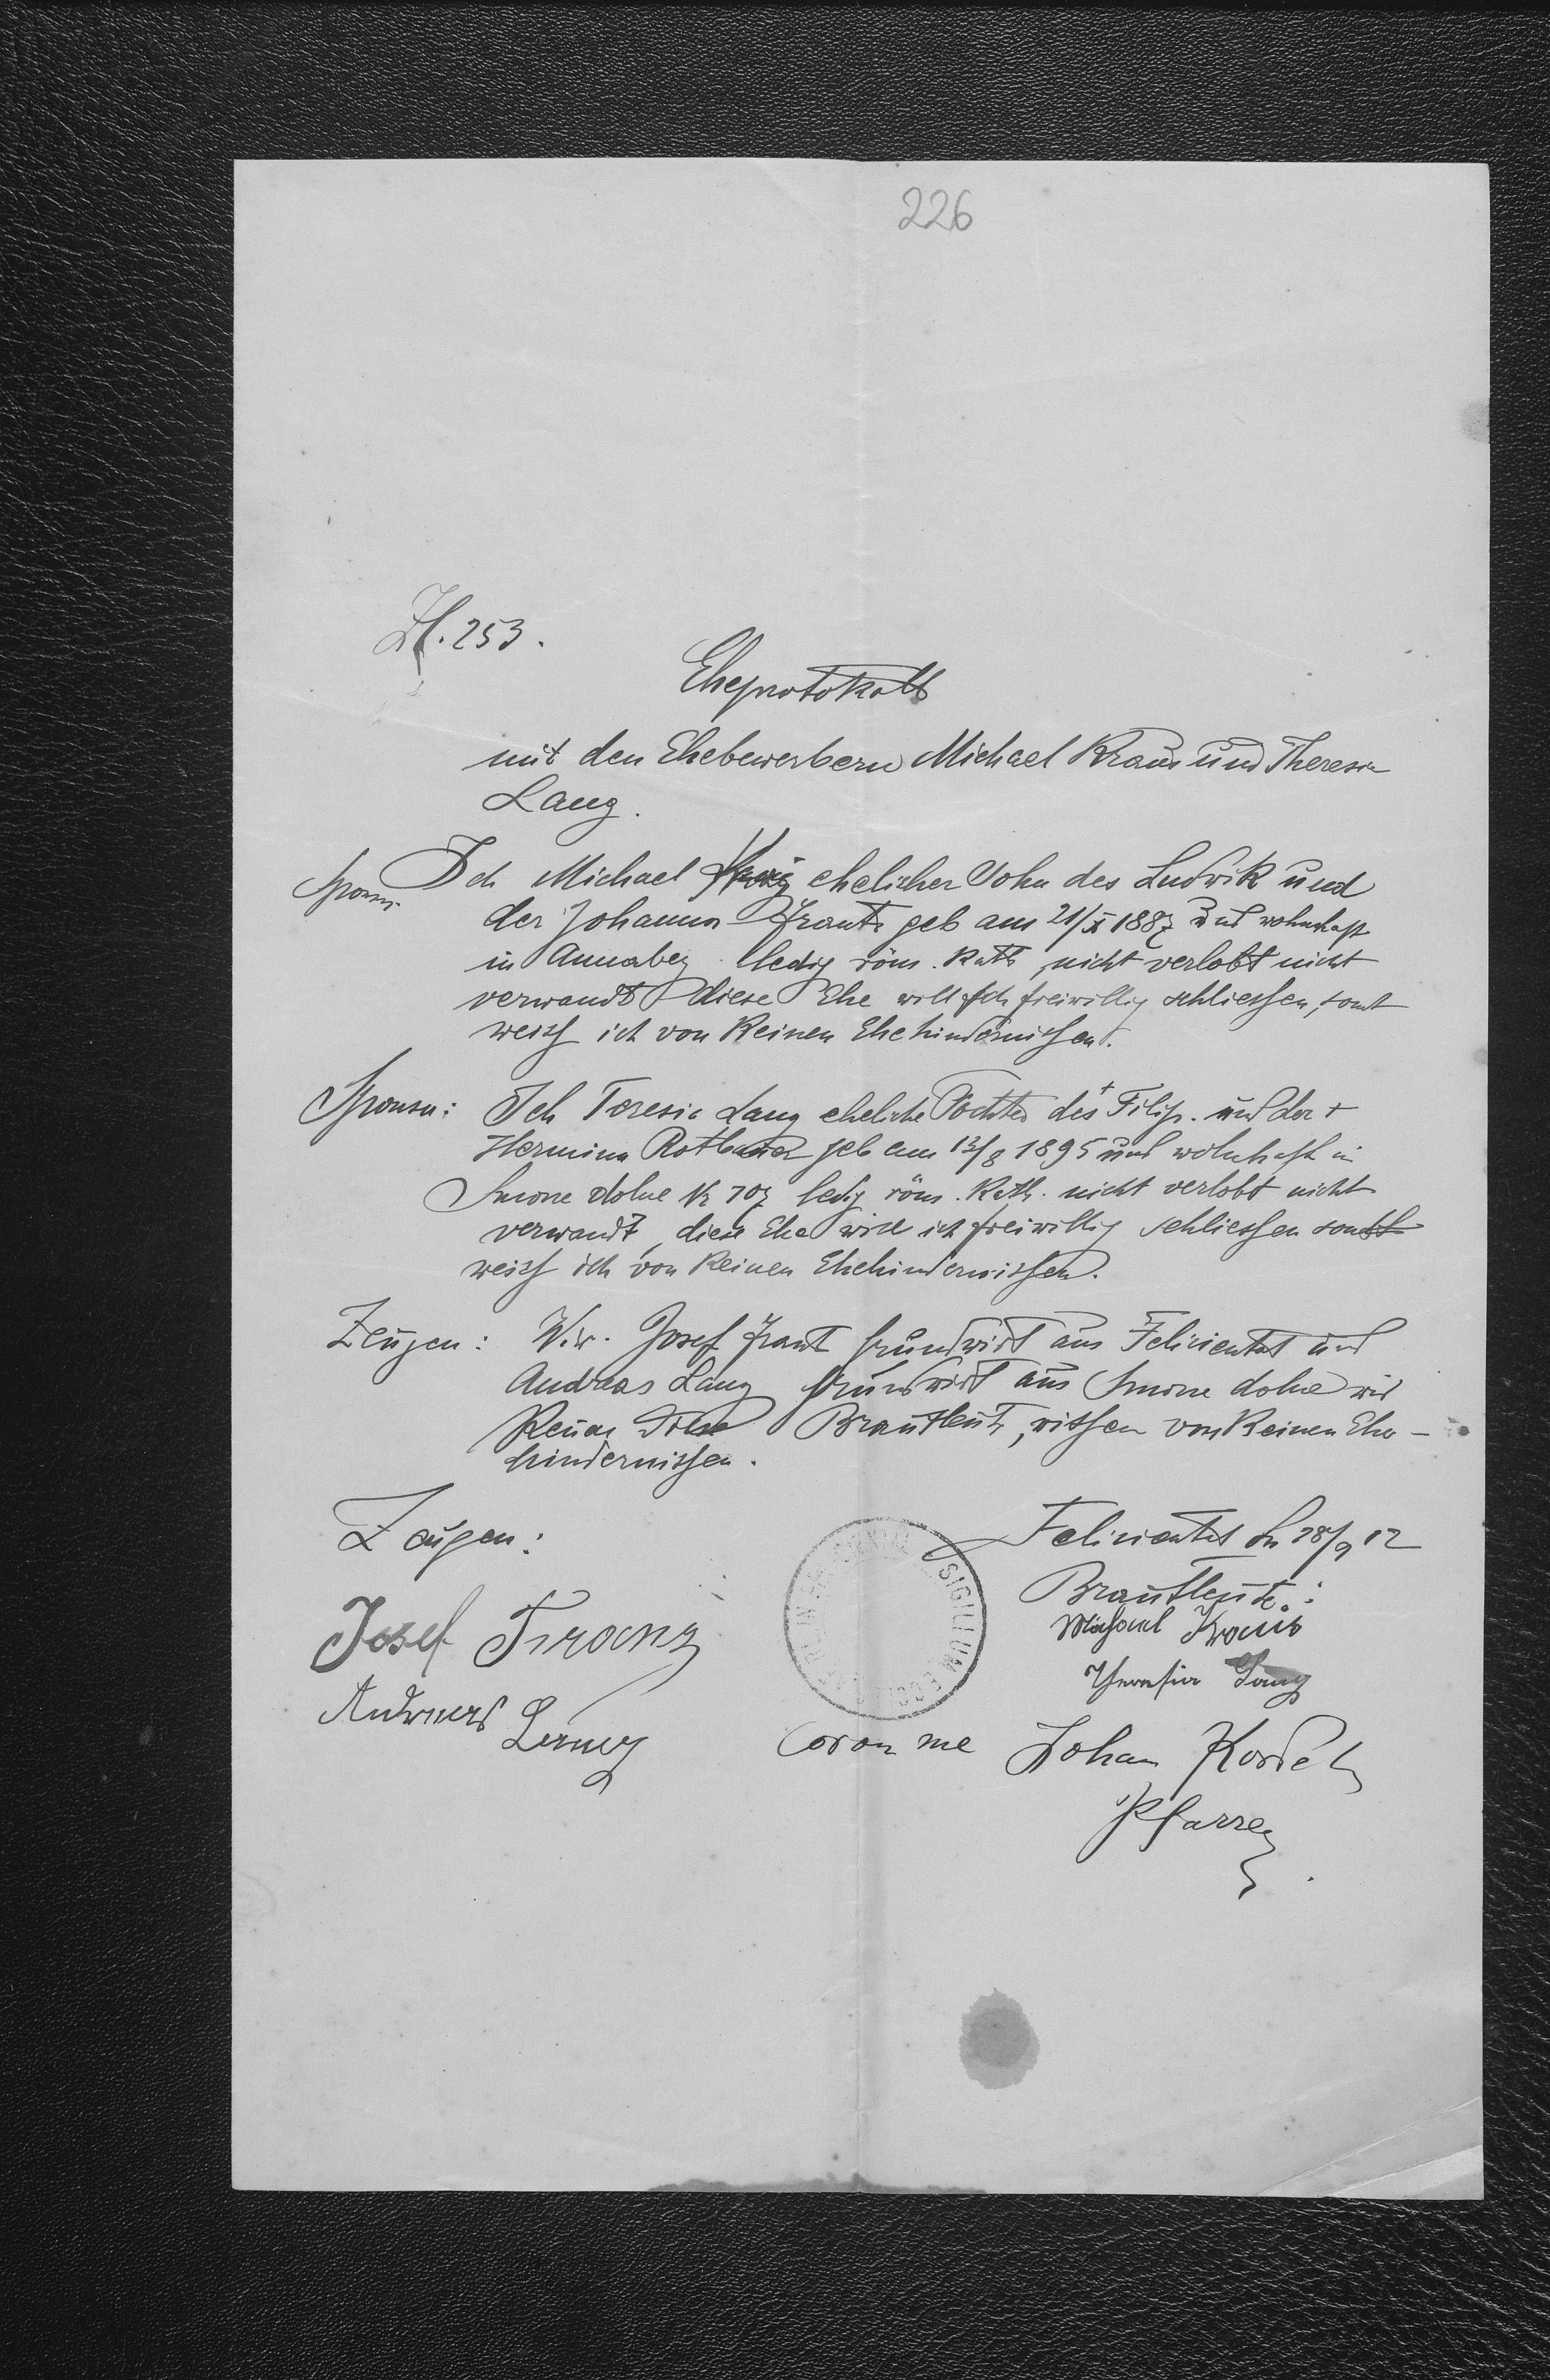 226
Zl. 253.
Eheprotokoll
mit den Ehebewerbern Michael Kraus und Theresia
Lang.
Sponsus
Ich Michael ehelicher Sohn des Ludwik und
der Johanna Frantz geb am 21/X 1887 und wohnhaft
in Annaberg ledig röm. kath nicht verlobt nicht
verwandt diese Ehe will ich freiwillig schliessen, sonst
weiss ich von Keinen Ehehindernissen.
Sponsa: Ich Teresia Lang eheliche Tochter des + Filip. und der +
Hermina geb am 12/8 1895 und wohnhaft in
Smorze dolne N 107 ledig röm. Kath. nicht verlobt nicht
verwandt, diese Ehe will ich freiwillig schliessen sonst
weiss ich von Keinen Ehehindernissen.
Zeugen: Wir Josef Frantz Grundwirt aus Felicientat und
Andreas Lang Grundwirt aus Smorze dolne wir
Kennen diese Brautleute, wissen von Keinen Ehe-
hindernissen.
Zeugen:
Felicientat den 28/9 12
Brautleute:
Josef Franz
Michael Kraus
Andreas Lang
Theresia Lang
SIGILLUM
Coram me Johan
Pfarrer